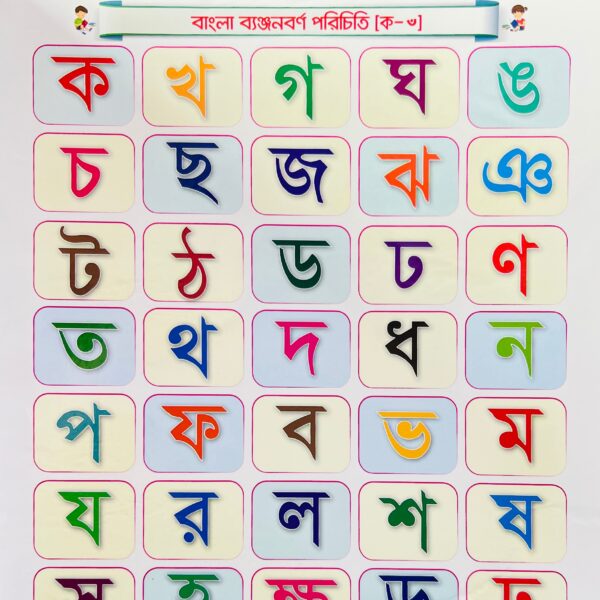 বাংলা ব্যঞ্জনবর্ণ পরিচিতি [ক-ঁ]
ক খ গ ঘ ঙ
চ ছ জ ঝ ঞ
ট ঠ ড ঢ ণ
ত থ দ ধ ন
প ফ ব ভ ম
য র ল শ ষ
স হ ক্ষ ড় ঢ়